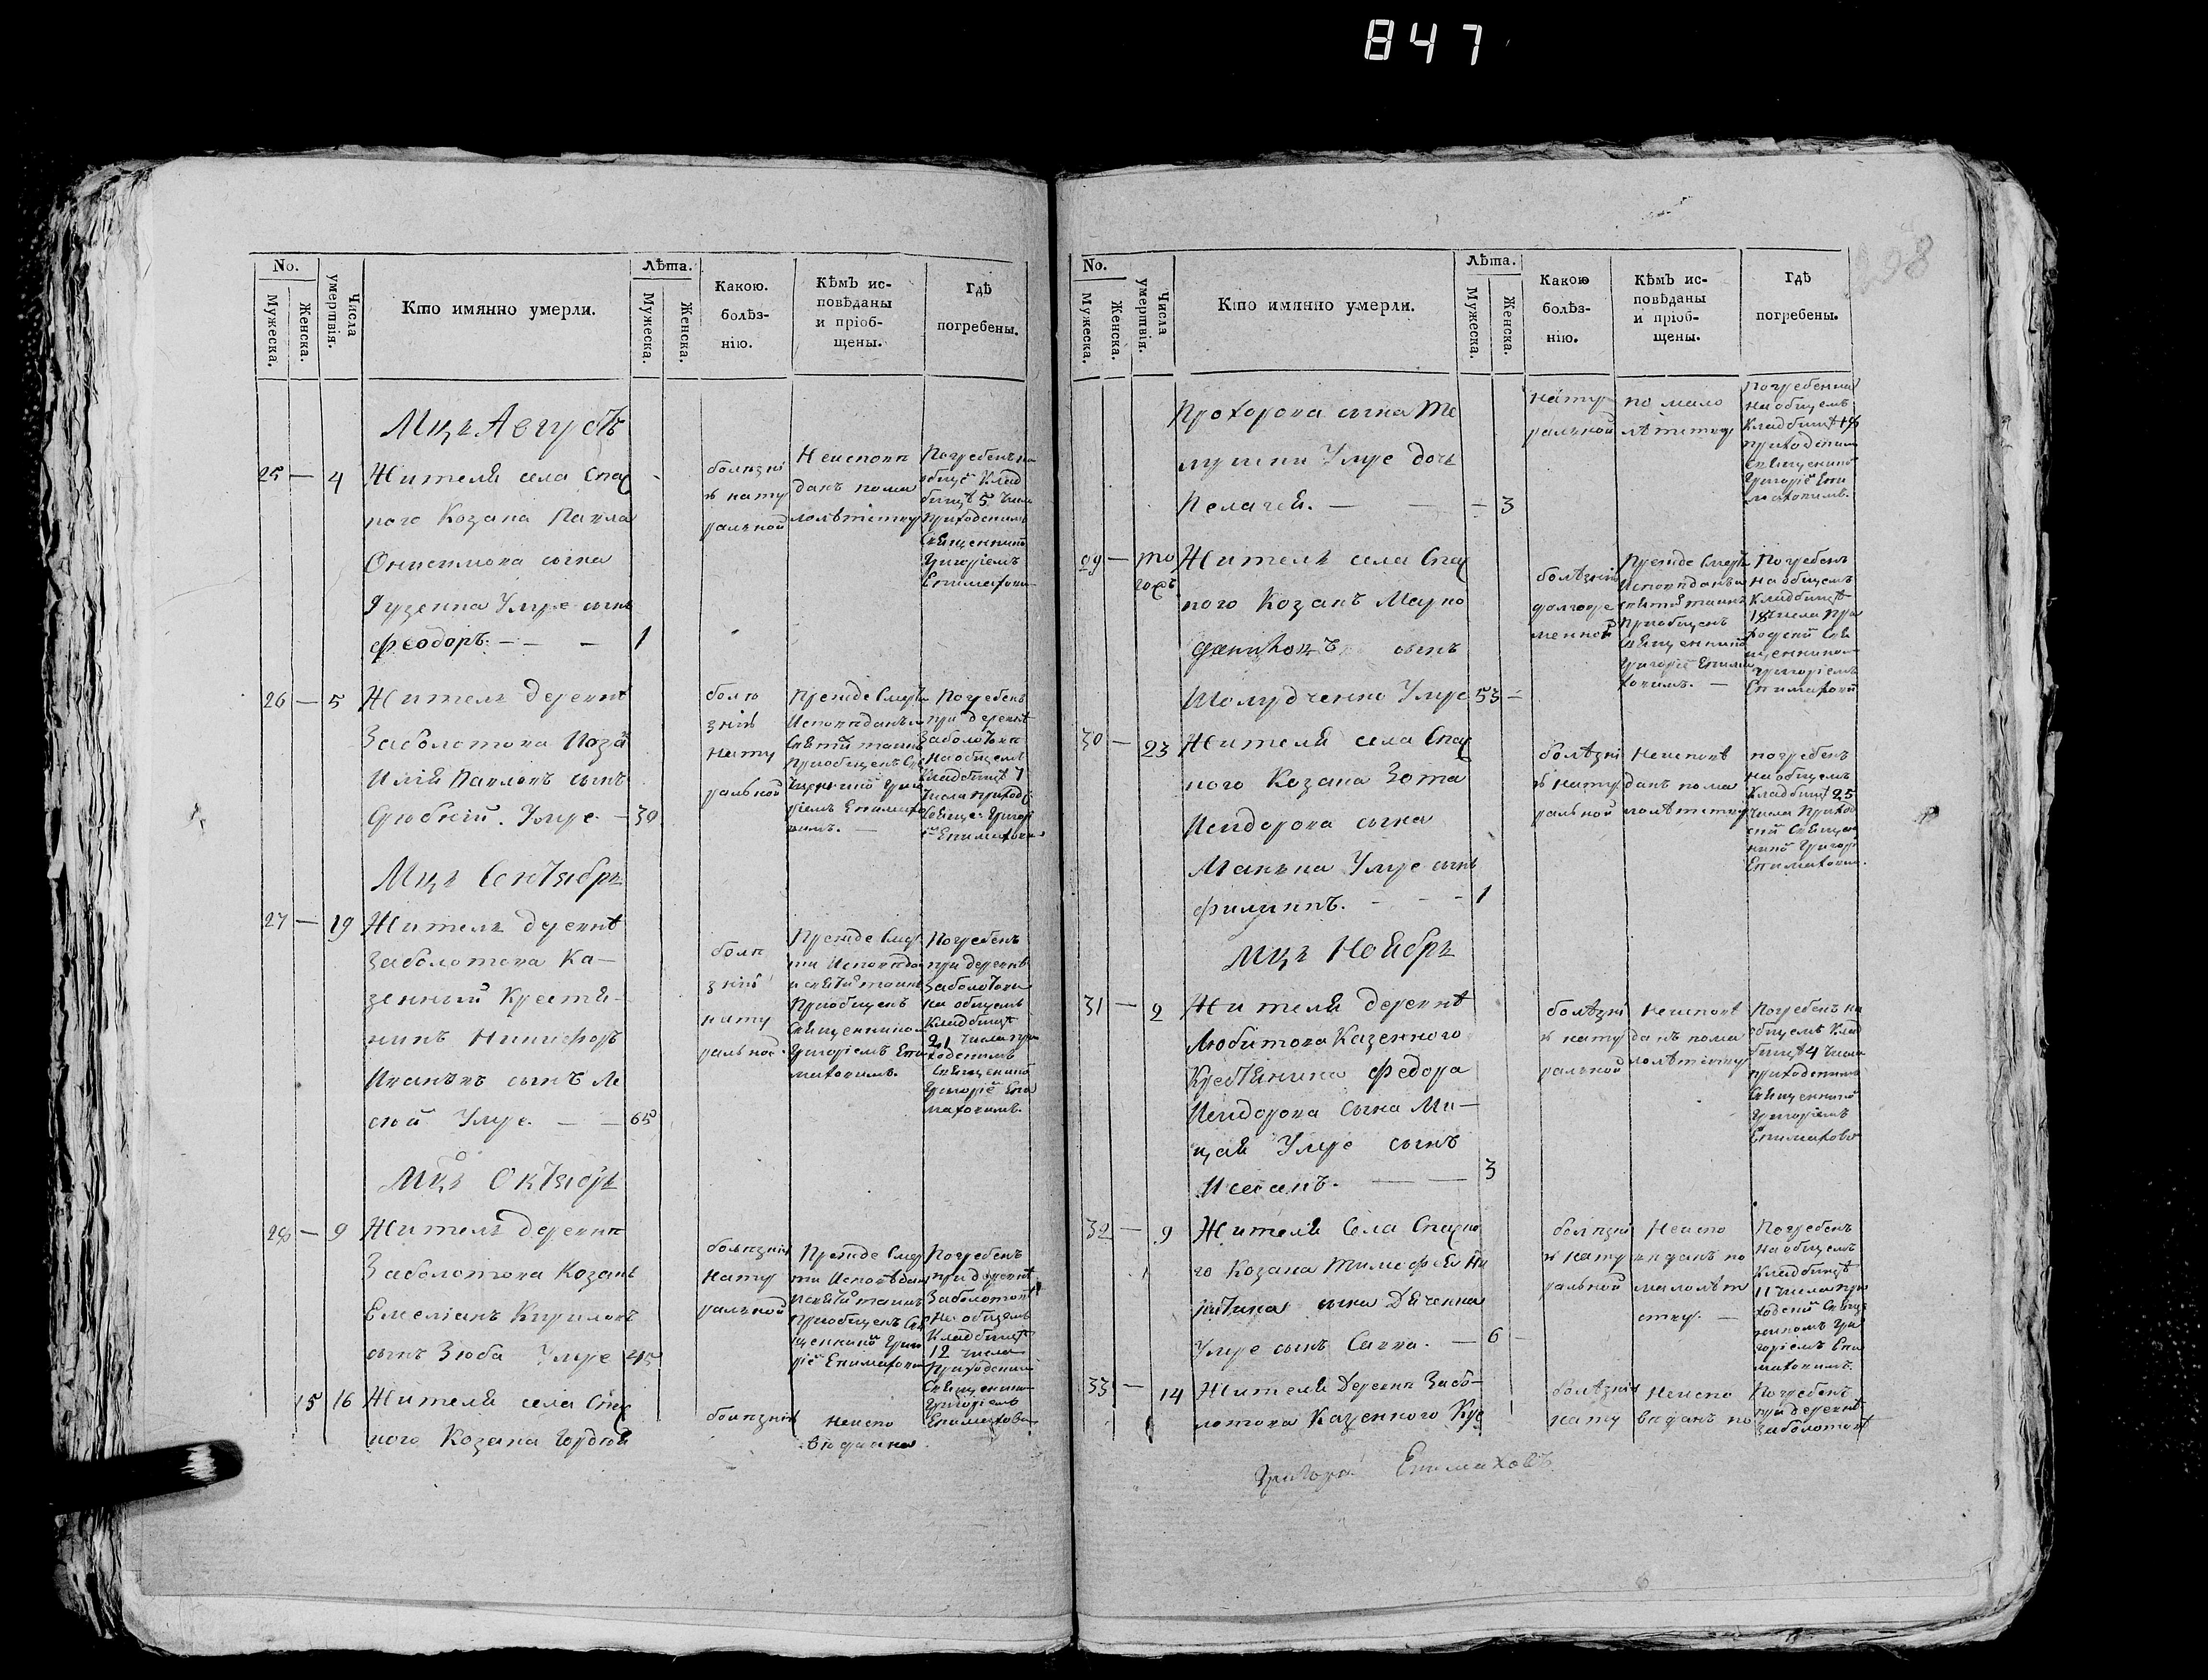 847
No.
Мужеска.
Женска.
Числа умертвія.
Кто имянно умерли.
Лѣта.
Мужеска.
Женска.
Какою. болѣз-
нію.
Кѣмъ ис-
повѣданы
и пріоб-
щены.
Гдѣ
погребены.
Мцъ Августъ
25 — 4 Жителя села Спас
кого Козака Павла
Онисимова сына
умре сынъ
Феодоръ. — — 1
болѣзні
ѣ нату
ральной
Неисповѣ
данъ пома
лолѣтству
Погребенъ на
общѣ клад
бищѣ 5 числа
Приходскимъ
Священникомъ
Григоріемъ
Епимахови
26 — 5 Житель деревнѣ
Заболотова Коза
Илія Павловъ сынъ
умре — 30
болѣ
знію
нату
ральной
Прежде смерти
Исповѣданъ и
святыхъ таинъ
Пріобщенъ
Погребенъ
при деревнѣ
Заболотовѣ
на общемъ
кладбищѣ 7
числа приход
Мцъ Сентябрь
27 — 19 Житель деревнѣ
Заболотова Ка—
зенный Крестя—
нинъ Никифоръ
Ивановъ сынъ Ле
ской Умре — — 65
болѣ
знію
нату
ральной
Прежде смер
ти Исповѣдан
и святыхъ таинъ
Пріобщенъ
Священником
Григоріемъ Епи
маховимъ.
Погребенъ
при деревнѣ
Заболотови
на общемъ
кладбищѣ
21 числа при
ходскимъ
Священнико
Григоріе Епи
маховимъ.
Мцъ Октябрь
28 — 9 Житель деревни
Заболотова Козакъ
Емеліанъ Кириловъ
сынъ Зюба Умре 45
болѣзнію
нату
ральной
Прежде смер
ти Исповѣдан
и святыхъ таинъ
пріобщенъ Свя
щенникомъ Григо
ріе Епимахови
Погребенъ
при деревнѣ
Заболотовѣ
на общемъ
кладбищѣ
12 числа
Приходскимъ
Священнико
Григоріемъ
Епимахови
15 16 Жителя села Спас
кого Козака Гордѣя
болѣзнію
неиспо
вѣданна
No.
Мужеска.
Женска.
Числа умертвія.
Кто имянно умерли.
Лѣта.
Мужеска.
Женска.
Какою
болѣз-
нію.
Кѣмъ ис-
повѣданы
и пріоб-
щены.
Гдѣ
погребены.
Прохорова сына
Умре дочь
Пелагея. — — 3
нату
ральной
по мало
лѣтству
Погребенна
на общемъ
кладбищѣ
приходским
Священнико
Григоріе Епи
маховимъ.
29 — то гожъ Житель села Спас
кого Козакъ Марко
сынъ
Шолудченко Умре 53 —
болѣзнію
долговре
менной
Прежде смерти
Исповѣданъ и
святыхъ таинъ
Пріобщенъ
Священнико
Григоріе Епима
ховимъ. —
Погребенъ
на общемъ
кладбищѣ
18 числа При
ходскій Свя
щенником
Григоріемъ
Епимахови
30 — 23 Жителя села Спас
кого Козака Зота
Исидорова сына
Умре сынъ
Филиппъ. — — 1
болѣзні
ѣ нату
ральной
Неисповѣ
данъ пома
лолѣтству
погребенъ
на общемъ
кладбищѣ 25
числа Приход
ской Священ
нико Григорі
Епимахови.
Мцъ Ноябрь
31 — 2 Жителя деревнѣ
Любитова Казенного
Крестянина Федора
Исидорова Сына Ми—
щая Умре сынъ
— — 3
болѣзні
ѣ нату
ральной
Неисповѣ
данъ пома
лолѣтству
Погребенъ на
общемъ клад
бищѣ 4 числа
приходскимъ
Священнико
Григоріемъ
Епимахови
32 — 9 Жителя Села Спаско
го Козака Тимофея Ни
китина сына Дяченка
Умре сынъ Савва. — 6 —
болѣзні
ѣ нату
ральной
Неиспо
вѣданъ по
малолѣт
ству. —
Погребенъ
на общемъ
кладбищѣ
11 числа при
ходскій Свяще
никомъ Гри
горіемъ Епи
маховимъ.
33 — 14 Жителя Деревни Забо—
лотова Казенного Кре
болѣзнію
нату
Неиспо
вѣданъ по
Погребенъ
при деревнѣ
Заболотовѣ
Григорій Епимаховъ